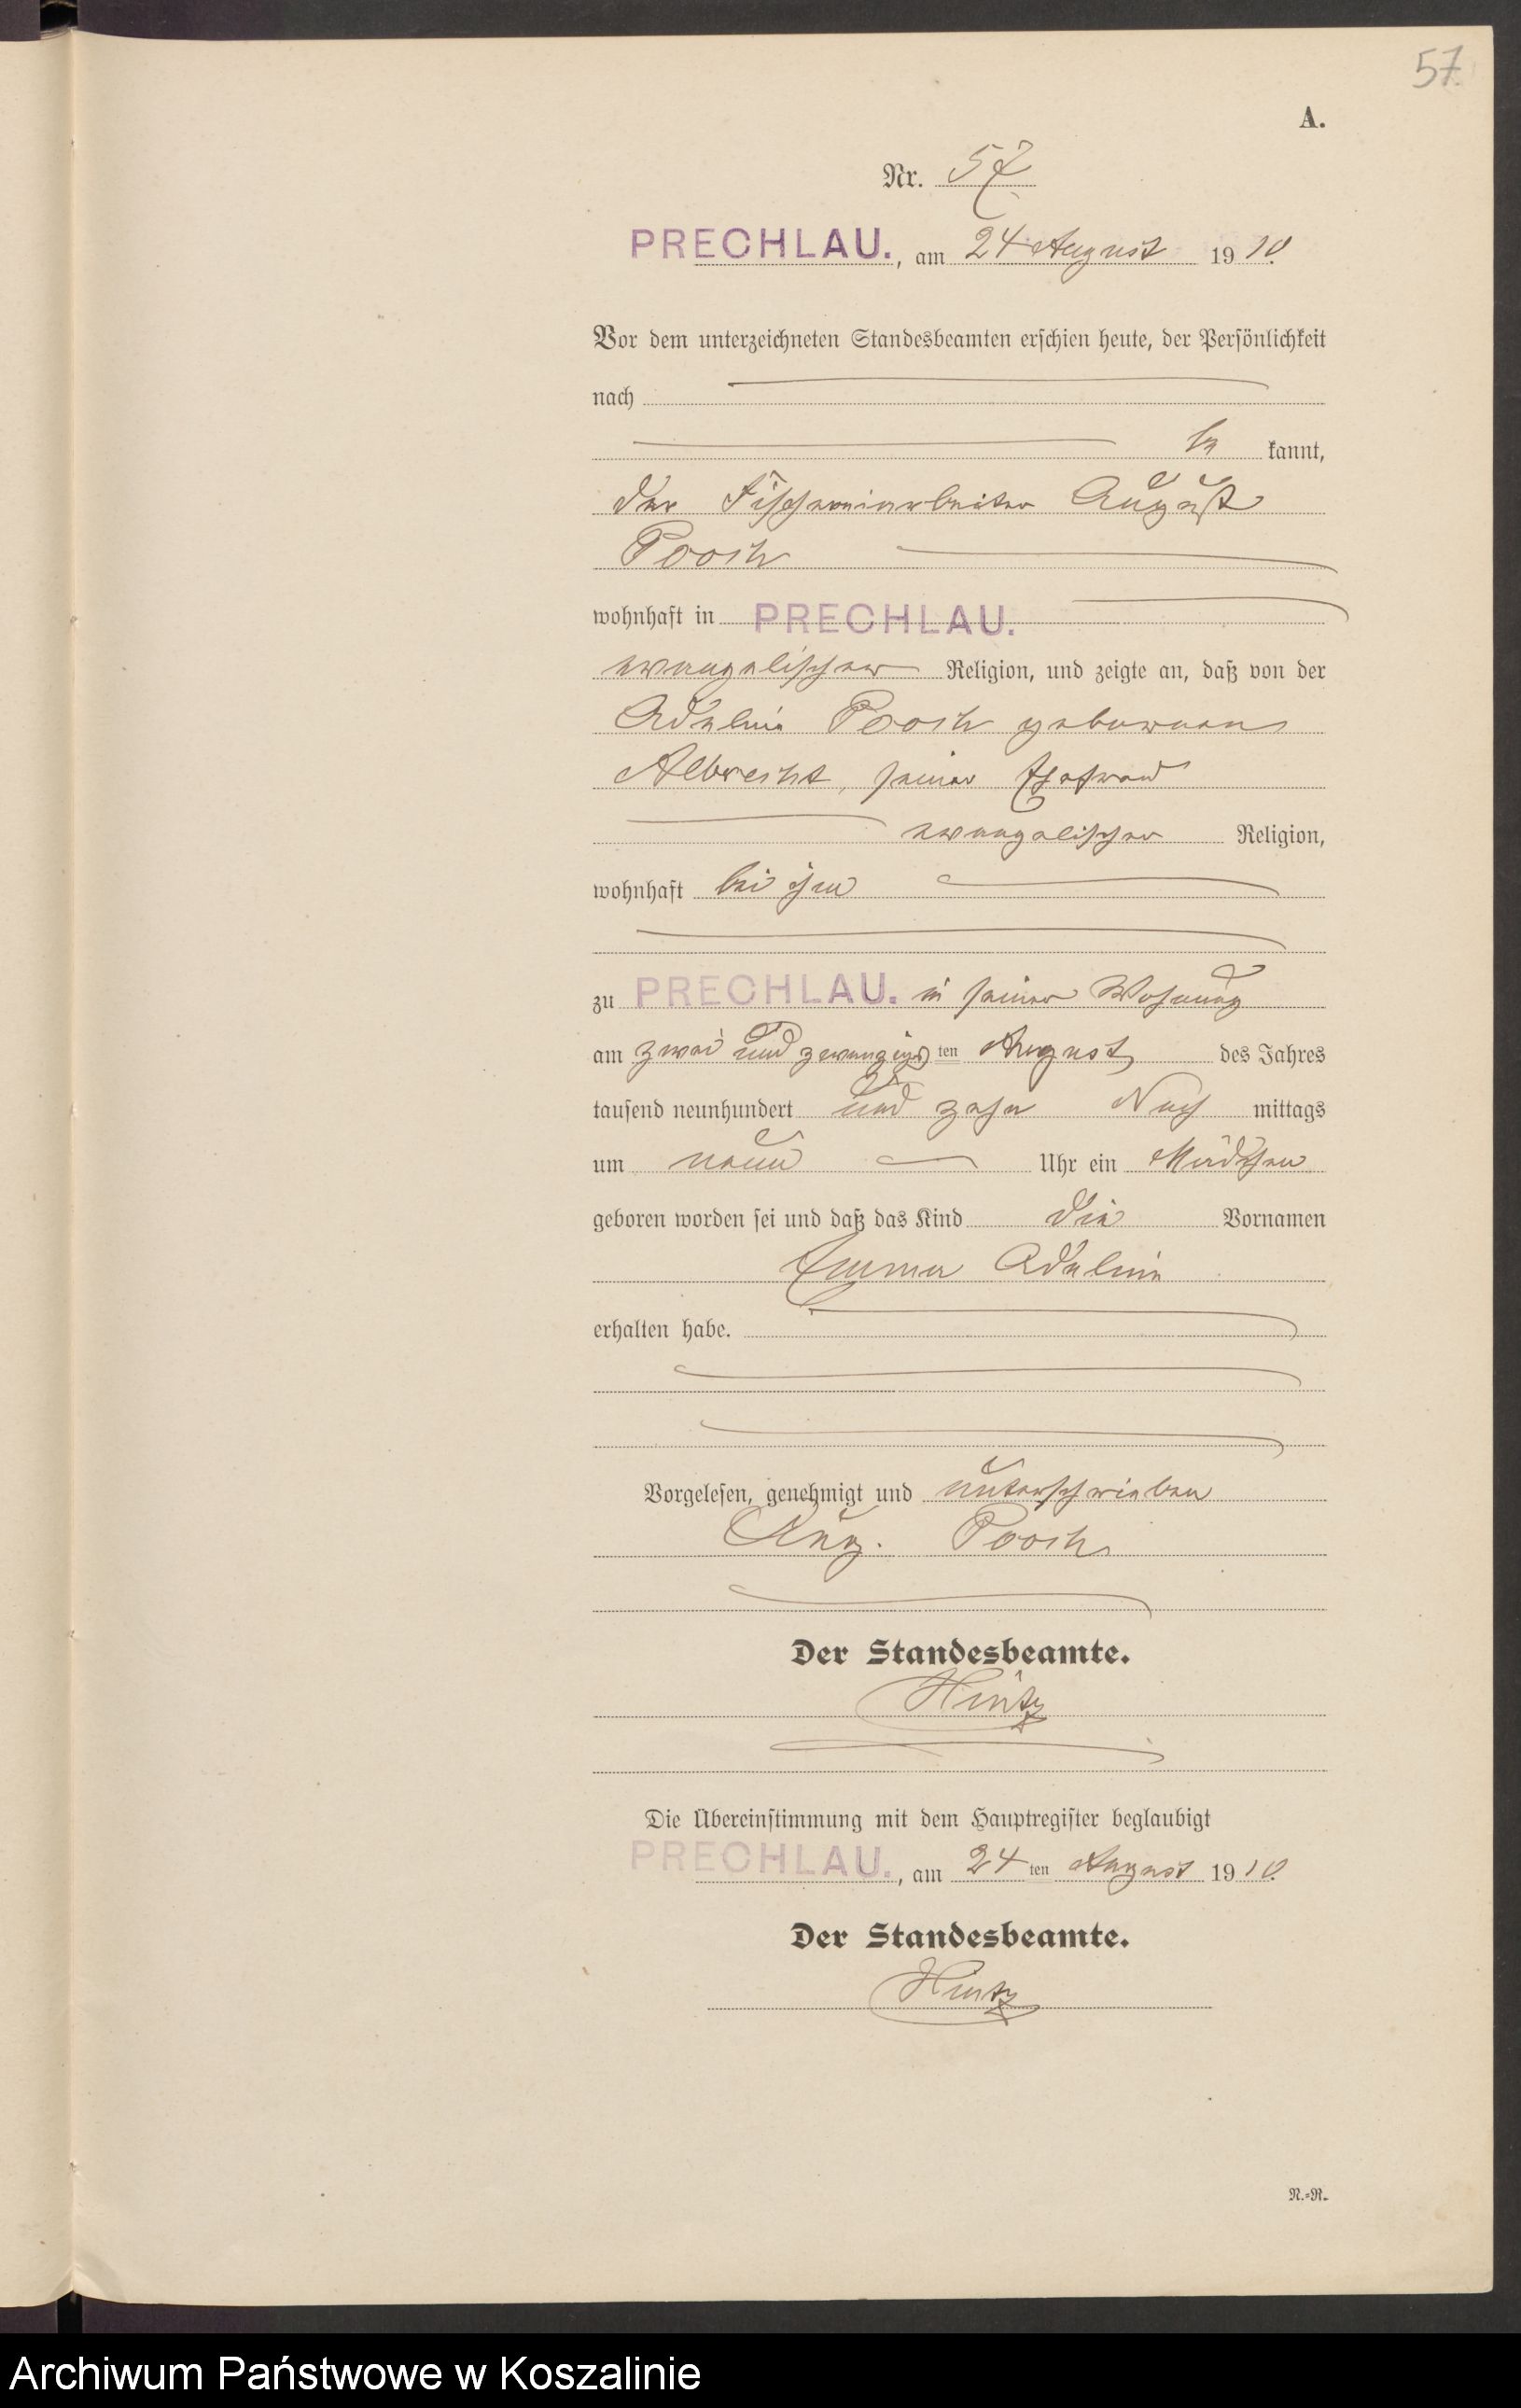 57.
A.
Nr. 57
PRECHLAU., am 24 August 1910.
Vor dem unterzeichneten Standesbeamten erschien heute, der Persönlichkeit
nach
be kannt,
der Fischereiarbeiter August
Pooch
wohnhaft in PRECHLAU.
evangelischer Religion, und zeigte an, daß von der
Adeline Pooch geborenen
Albrecht, seiner Ehefrau
evangelischer Religion,
wohnhaft bei ihm
zu PRECHLAU. in seiner Wohnung
am zwei und zwanzigsten August des Jahres
tausend neunhundert und zehn Nach mittags
um neun Uhr ein Mädchen
geboren worden sei und daß das Kind die Vornamen
Emma Adeline
erhalten habe.
Vorgelesen, genehmigt und unterschrieben
Aug. Pooch
Der Standesbeamte.
Hintz
Die Übereinstimmung mit dem Hauptregister beglaubigt
PRECHLAU., am 24 ten August 1910.
Der Standesbeamte.
Hintz
N.=R.
Archiwum Państwowe w Koszalinie